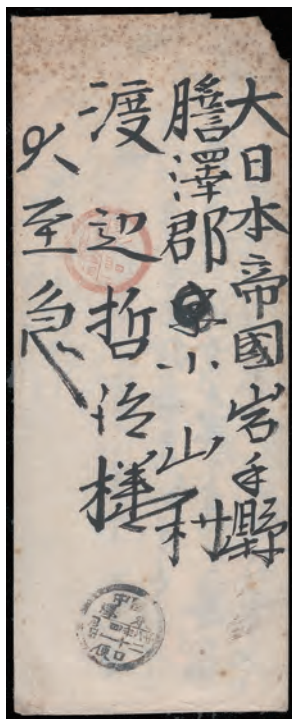 大日本帝國岩手縣
膽澤郡小山村
渡辺哲治様
大至急